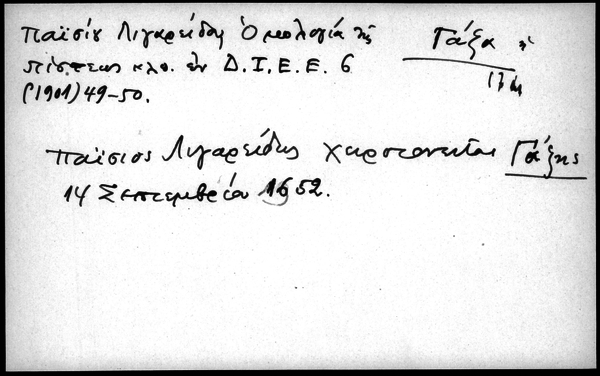 Παϊσίου Λιγαρείδου Ὁμολογία τῆς
πίστεως κλπ. ἐν Δ.Ι.Ε.Ε. 6
(1901) 49-50.
Γάζα ἡ
Παΐσιος Λιγαρείδης χειροτονεῖται Γάζης
14 Σεπτεμβρίου 1652.